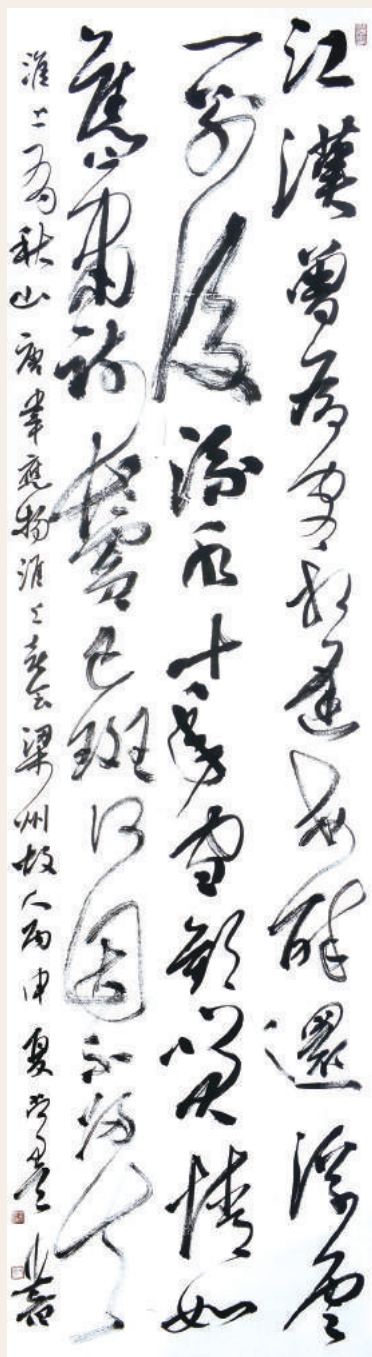 江漢曾為客相逢每醉還浮雲
一别後流水十年間歡笑情如
舊蕭疏鬢已斑何因不歸去
淮上有秋山唐韋應物淮上喜会梁州故人丙申夏